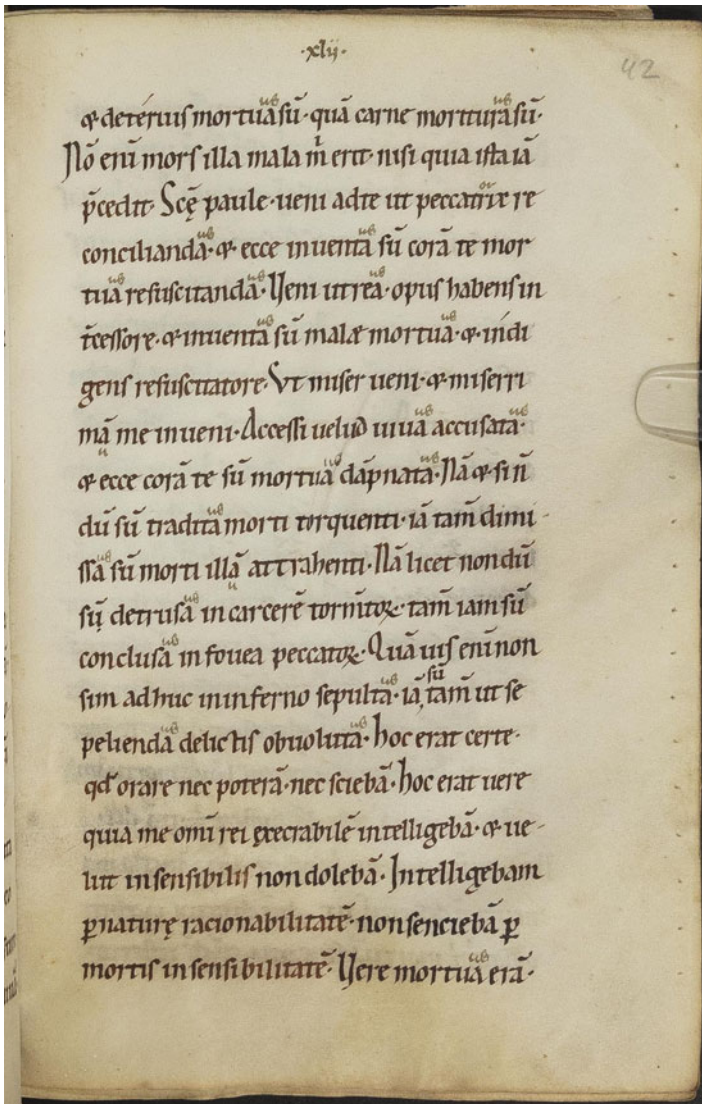 ·xlii·
42
& deterius mortuā sū· quā carne moritura sū·
Nō eni mors illa mala m̄ erit· nisi quia ista iā
p̄cedit· Scę̄ paule· ueni ad te ut peccatrix re
conciliandā· & ecce inuentā sū corā te mor
tuā resuscitandā· Veni ut reā· opus habens in
t̄cessore· & inuentā sū malæ mortuā· & indi
gens resuscitatore· Vt miser ueni· & miserri
mā me inueni· Accessi uelud uiuā accusatā·
& ecce corā te sū mortuā dāpnatā· Nā & si n̄
dū sū traditā morti torquenti· iā tam̄ dimi
ssā sū morti illā attrahenti· Nā licet nondū
sū detrusā in carcerē tornitoꝝ· tam̄ iam sū
conclusā in fouea peccatoꝝ· Quāuis eni non
sim adhuc in inferno sepultā· iā sū tam̄ ut se
peliendā delictis obuolutā· hoc erat certe·
qd̄ orare nec poterā· nec sciebā· hoc erat uere
quia me omi rei execrabilē intelligebā· & ue-
lut insensibilis non dolebā· Intelligebam
ꝑ naturę racionabilitatē· non senciebā ꝑ
mortis insensibilitatē· Vere mortuā erā·